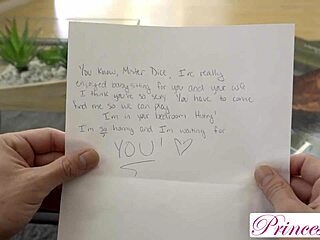 You know, Mister Dice, I've really
enjoyed babysitting for you and your wife
I think you're so sexy. You have to come
find me so we can play
I'm in your bedroom. Hurry!
I'm so horny and I'm waiting for
YOU! ♡
Princes